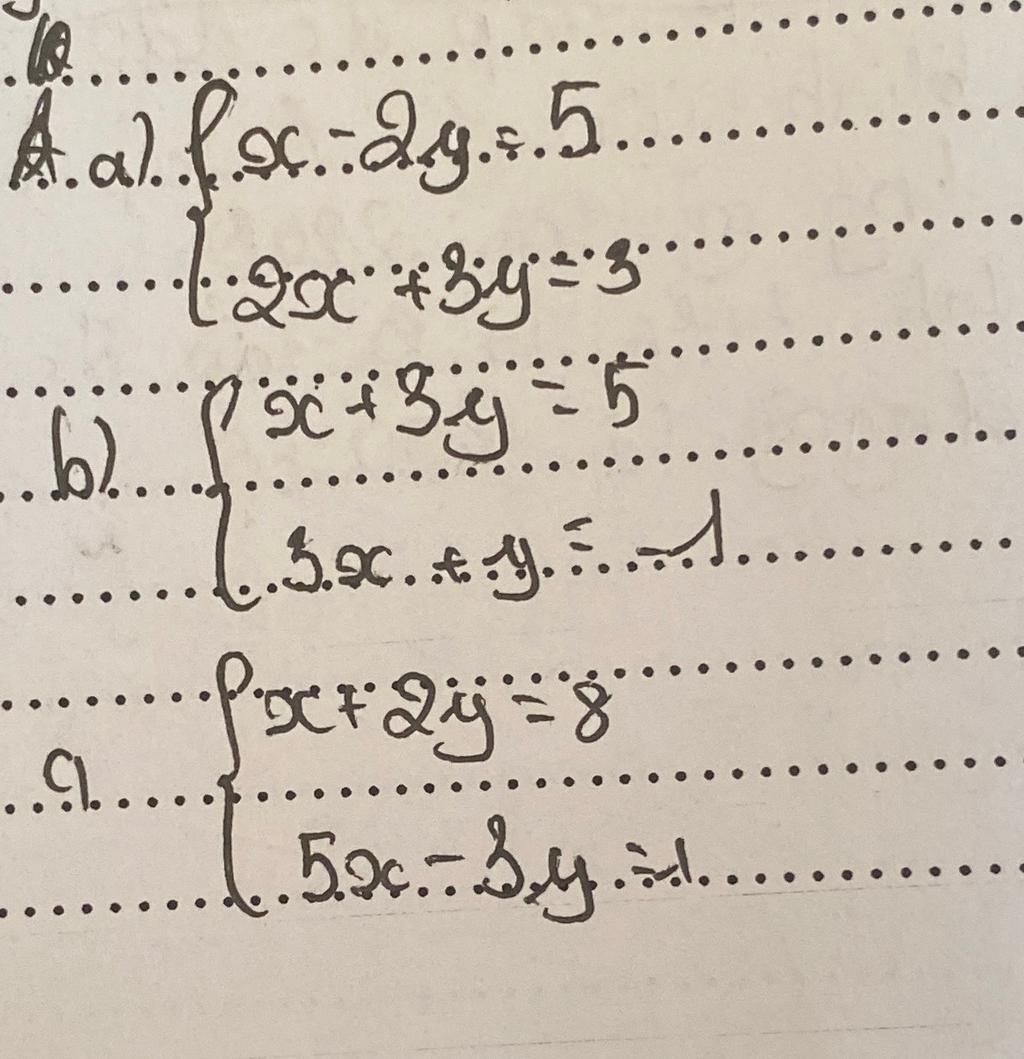 a) { x - 2y = 5
2x + 3y = 3
b) { x + 3y = 5
3x + y = -1
c) { x + 2y = 8
5x - 3y = 1